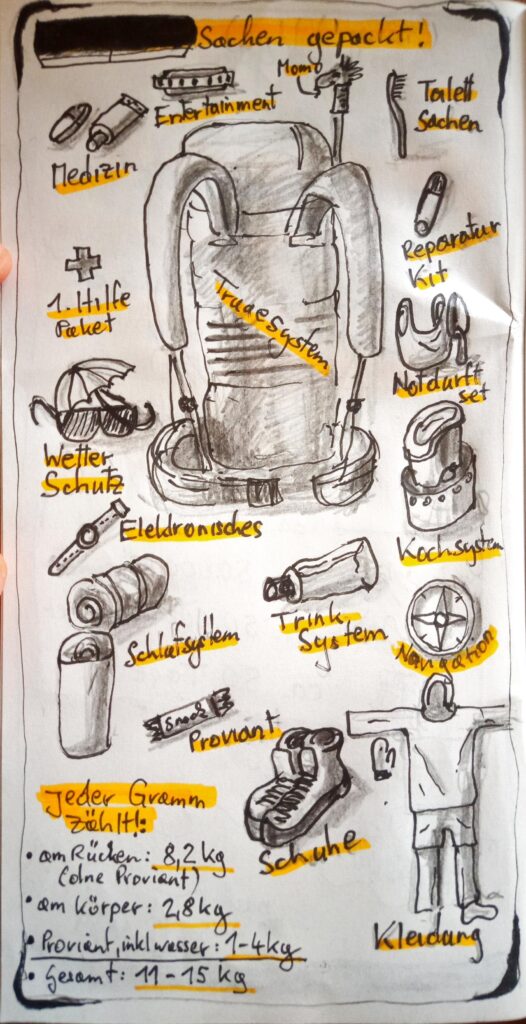 Sachen gepackt!
Entertainment
Momo
Toilett
Sachen
Medizin
Reparatur
Kit
1. Hilfe
Paket
Tragesystem
Notdurft
set
Wetter
Schutz
Elektronisches
Kochsystem
Schlafsystem
Trink
System
Navigation
Snack
Proviant
Schuhe
Kleidung
Jeder Gramm
zählt!:
• am Rücken: 8,2 kg
(ohne Proviant)
• am Körper: 2,8 kg
• Proviant, inkl wasser: 1-4kg
• Gesamt: 11-15 kg